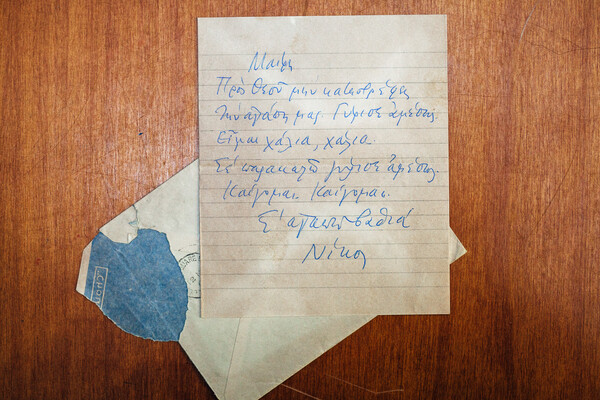 Μαίρη
Πρὸς Θεοῦ μην καταστρέφεις
την ἀγάπη μας. Γύρισε ἀμέσως.
Εἶμαι χάλια, χάλια.
Σέ παρακαλῶ γύρισε ἀμέσως.
Καίγομαι. Καίγομαι.
Σ' ἀγαπῶ βαθιά
Νίκος